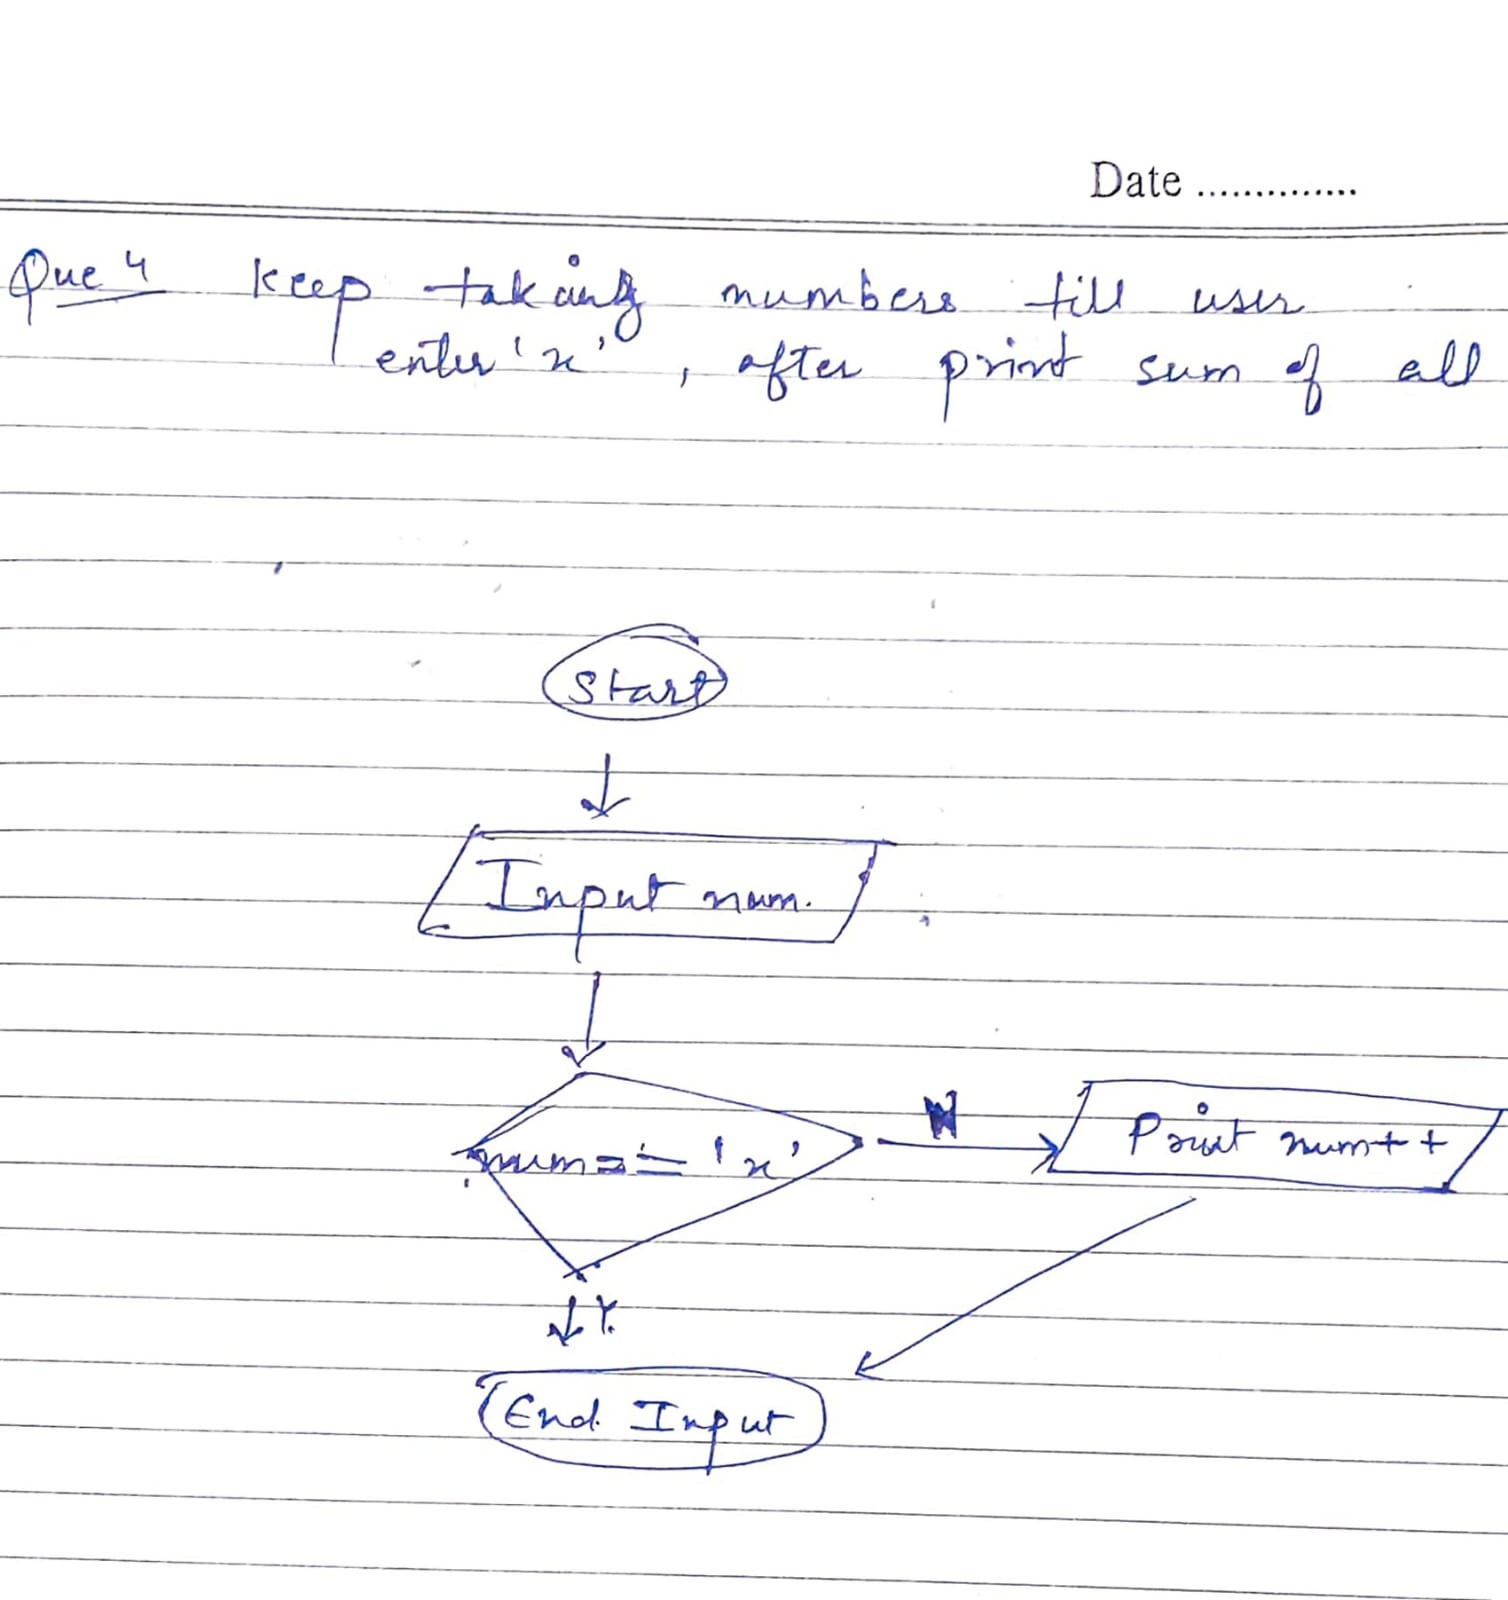 Date ..............
Que 4 Keep taking numbers till user
enter 'x', after print sum of all
Start
Input num.
N
num == 'x'
Print num++
Y.
End Input